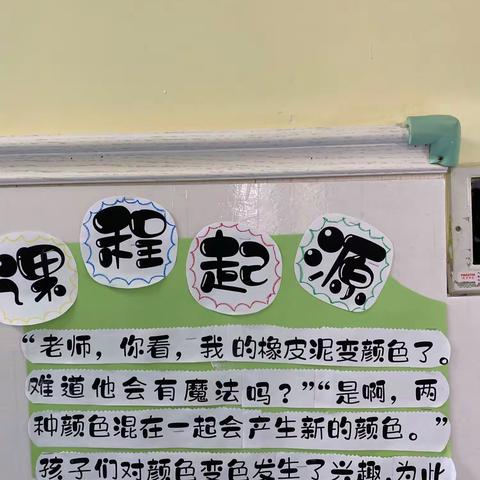 课程起源
“老师，你看，我的橡皮泥变颜色了。
难道他会有魔法吗？”“是啊，两
种颜色混在一起会产生新的颜色。”
孩子们对颜色变色发生了兴趣,为此